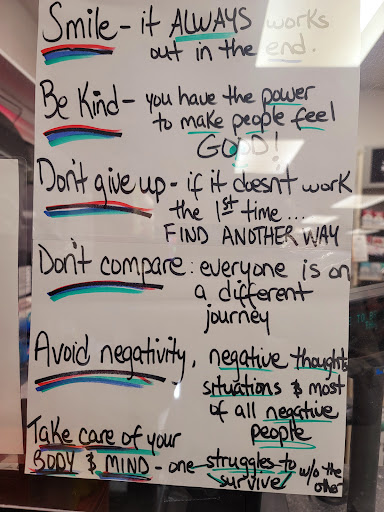 Smile - it ALWAYS works
out in the end.
Be Kind - you have the power
to make people feel
GOOD!
Don't give up - if it doesnt work
the 1st time...
FIND ANOTHER WAY
Don't compare: everyone is on
a different
journey
Avoid negativity, negative thoughts
situations & most
of all negative
people
Take care of your
BODY & MIND - one struggles to w/o the
survive other